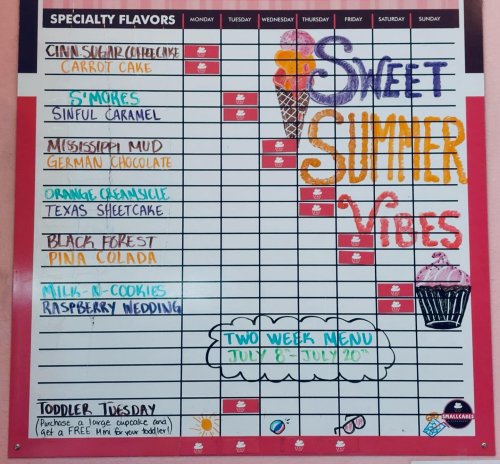 SPECIALTY FLAVORS MONDAY TUESDAY WEDNESDAY THURSDAY FRIDAY SATURDAY SUNDAY
CINN SUGAR COFFEECAKE
CARROT CAKE
SWEET
S'MORES
SINFUL CARAMEL
SUMMER
MISSISSIPPI MUD
GERMAN CHOCOLATE
ORANGE CREAMSICLE
TEXAS SHEETCAKE
VIBES
BLACK FOREST
PINA COLADA
MILK-N-COOKIES
RASPBERRY WEDDING
TWO WEEK MENU
JULY 8TH - JULY 20TH
TODDLER TUESDAY
(Purchase a large cupcake and
get a FREE Mini for your toddler!)
SMALLCAKES